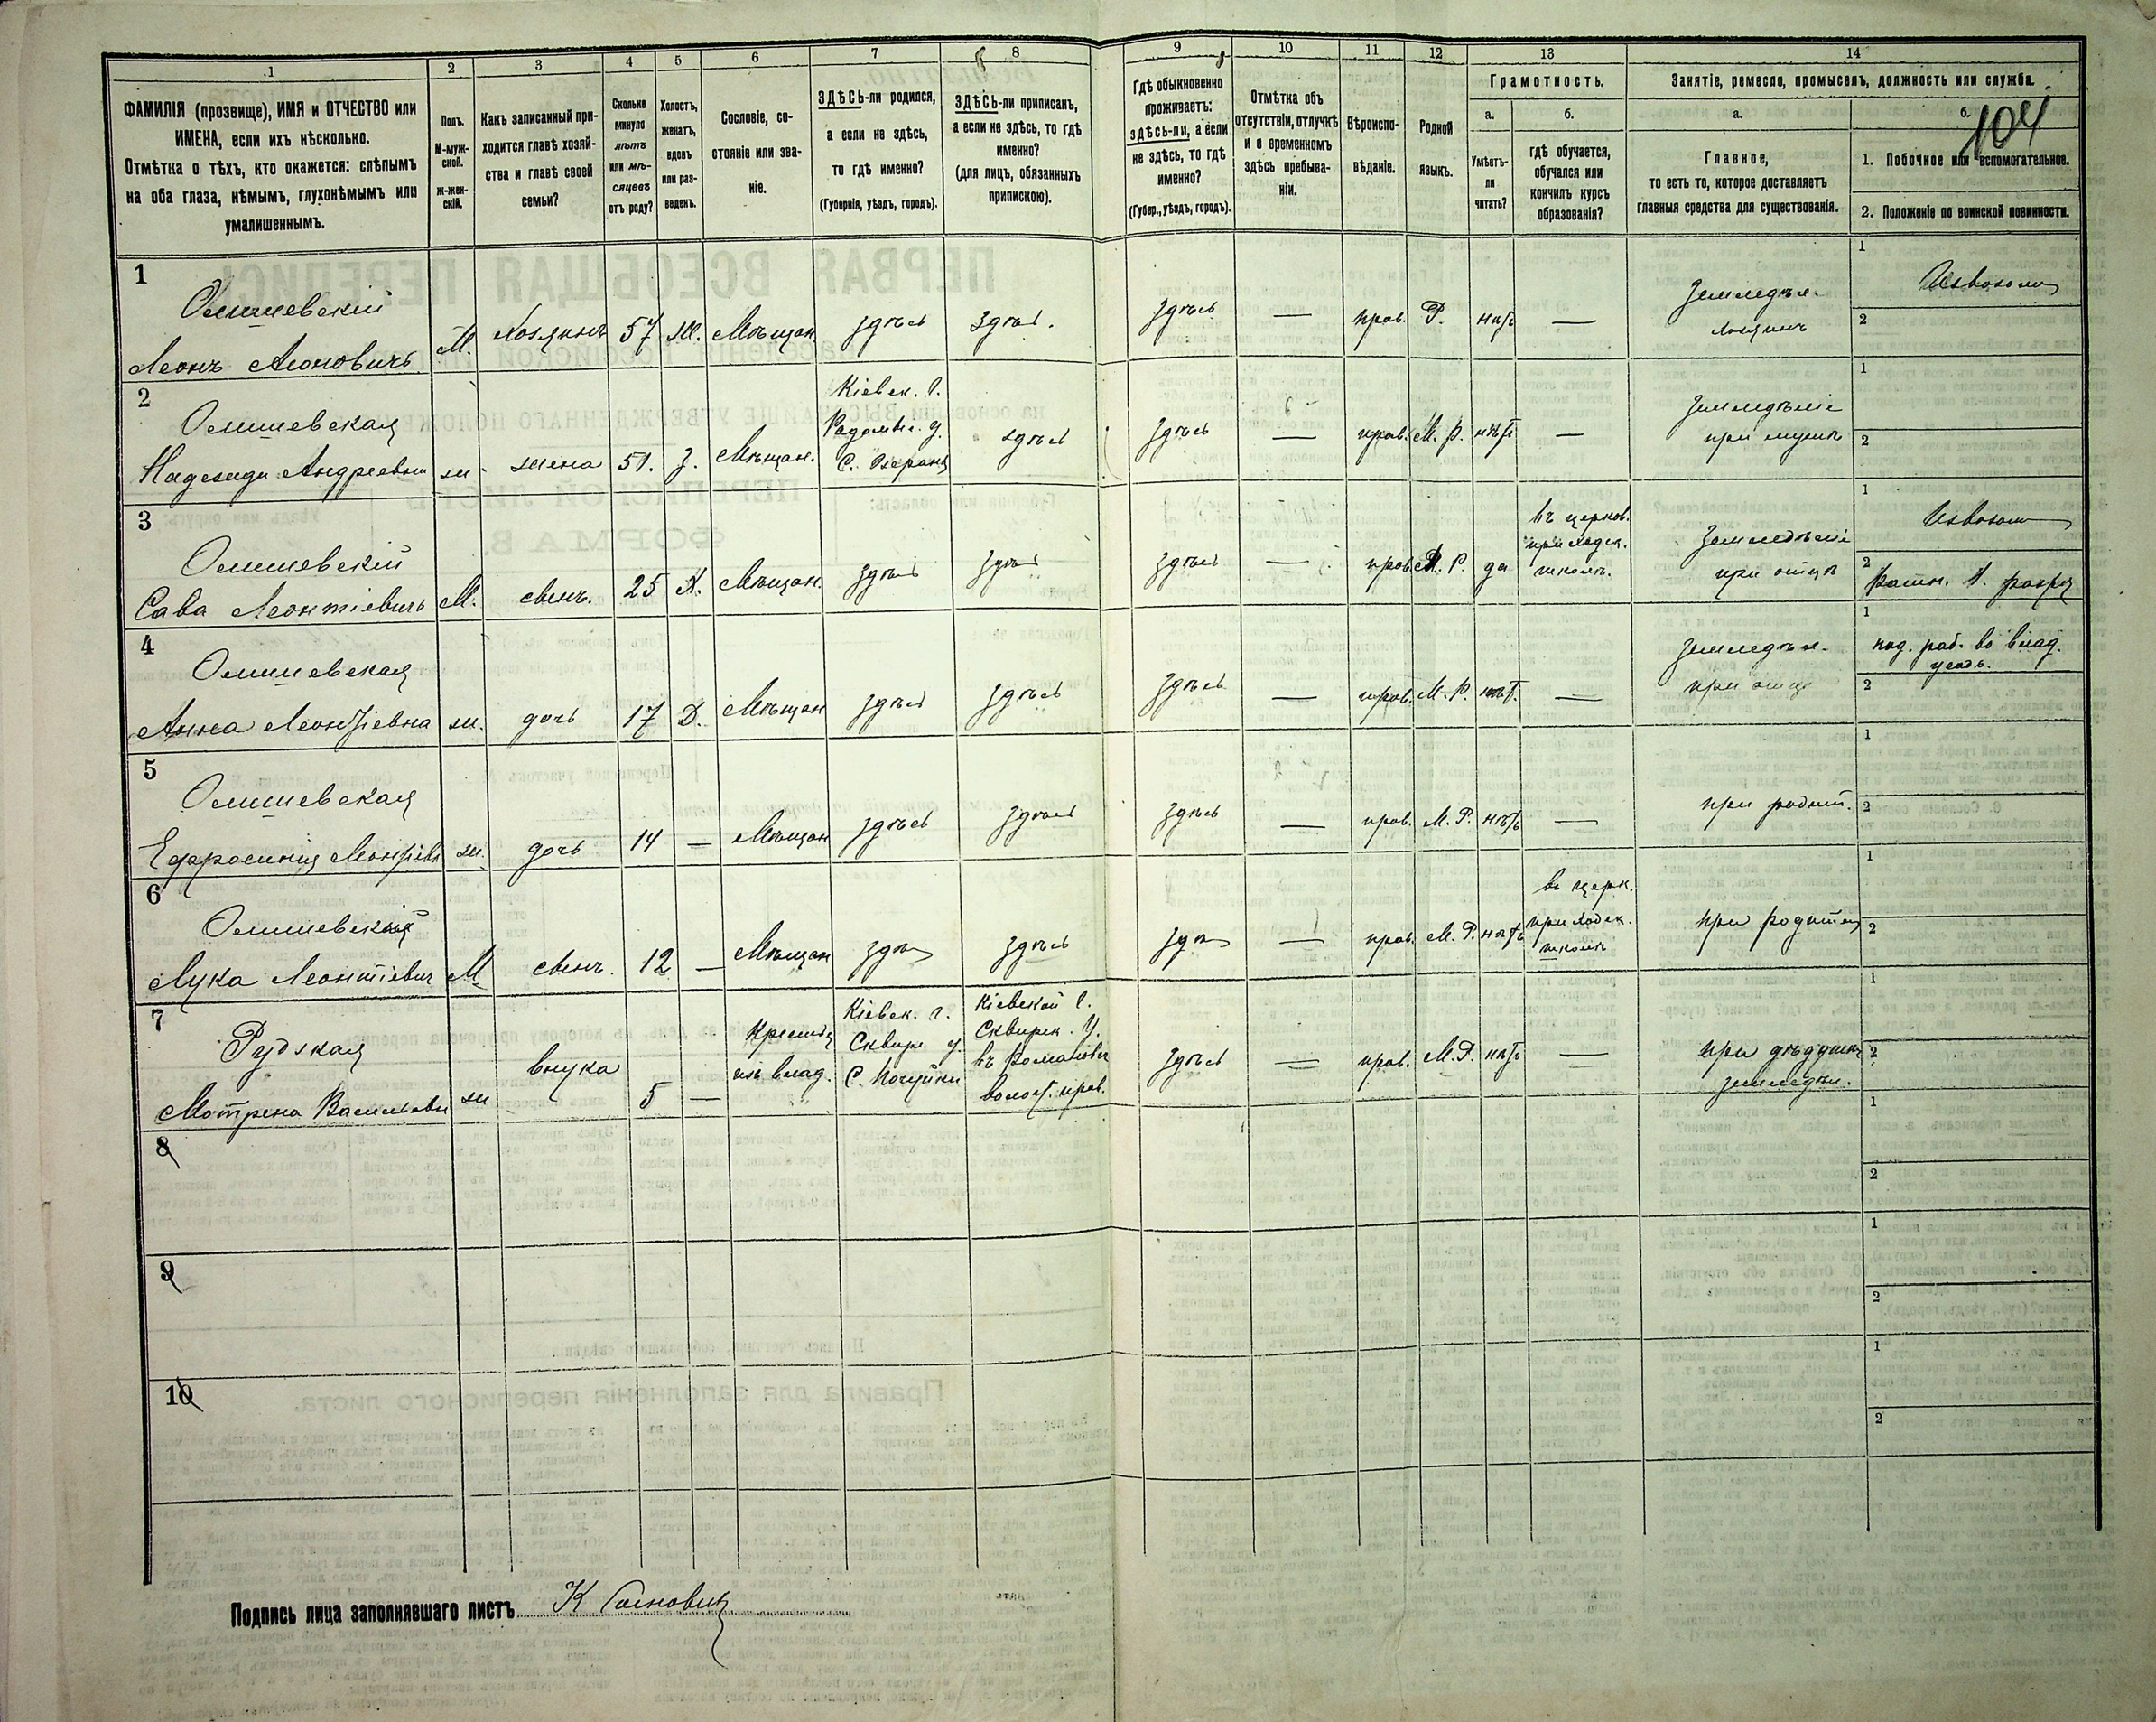 104
1 2 3 4 5 6 7 8 9 10 11 12 13 14
ФАМИЛІЯ (прозвище), ИМЯ и ОТЧЕСТВО или
ИМЕНА, если ихъ нѣсколько.
Отмѣтка о тѣхъ, кто окажется: слѣпымъ
на оба глаза, нѣмымъ, глухонѣмымъ или
умалишеннымъ.
Полъ.
М-муж-
ской.
ж-жен-
скій.
Какъ записанный при-
ходится главѣ хозяй-
ства и главѣ своей
семьи?
Сколько
минуло
лѣтъ
или мѣ-
сяцевъ
отъ роду?
Холостъ,
женатъ,
вдовъ
или раз-
веденъ.
Сословіе, со-
стояніе или зва-
ніе.
ЗДѢСЬ-ли родился,
а если не здѣсь,
то гдѣ именно?
(Губернія, уѣздъ, городъ).
ЗДѢСЬ-ли приписанъ,
а если не здѣсь, то гдѣ
именно?
(для лицъ, обязанныхъ
припискою).
Гдѣ обыкновенно
проживаетъ:
здѣсь-ли, а если
не здѣсь, то гдѣ
именно?
(Губер., уѣздъ, городъ).
Отмѣтка объ
отсутствіи, отлучкѣ
и о временномъ
здѣсь пребыва-
ніи.
Вѣроиспо-
вѣданіе.
Родной
языкъ.
Грамотность.
а.
Умѣетъ-
ли
читать?
б.
гдѣ обучается,
обучался или
кончилъ курсъ
образованія?
Занятіе, ремесло, промыселъ, должность или служба.
а.
Главное,
то есть то, которое доставляетъ
главныя средства для существованія.
б.
1. Побочное или вспомогательное.
2. Положеніе по воинской повинности.
1
Олишевскій
Леонъ Леоновичъ
М. Хозяинъ 57 Ж. Мѣщан. здѣсь здѣсь. здѣсь — прав. Р. нѣтъ —
Земледѣл.
хозяинъ
1 Извозомъ
2
2
Олишевская
Надежда Андреевна
ж жена 51. З. Мѣщан.
Кіевск. г.
Радомы. у.
С.
здѣсь здѣсь — прав. М. Р. нѣтъ —
Земледѣліе
при мужѣ
1
2
3
Олишевскій
Сава Леонтіевичъ
М. сынъ. 25 Х. Мѣщан. здѣсь здѣсь здѣсь — прав. М. Р. да
въ церков.
приходск.
школѣ.
Земледѣліе
при отцѣ
1 Извозом
2 Ратн. 1. разряд
4
Олишевская
Анна Леонтіевна
ж. дочь 17 Д. Мѣщан здѣсь здѣсь здѣсь — прав. М. Р. нѣт. —
Земледѣл.
при отцѣ
1 под. раб. во влад.
усадь.
2
5
Олишевская
Ефросинія Леонтіевн
ж. дочь 14 — Мѣщан здѣсь здѣсь здѣсь — прав. М. Р. нѣтъ —
при родит.
1
2
6
Олишевский
Лука Леонтіевич
М сынъ. 12 — Мѣщан здѣсь здѣсь здѣсь — прав. М. Р. нѣтъ
въ церк.
приходск.
школѣ
при родител
1
2
7
Рудская
Мотрена Васильевн
ж внука 5 —
Крестья
изъ влад.
Кіевск. г.
Сквир у.
С. Почуйки
Кіевской г.
Сквирск. У.
въ Романовк
волост. прав.
здѣсь — прав. М. Р. нѣтъ —
при дѣдушкѣ
земледѣл.
1
2
8
1
2
9
1
2
10
1
2
Подпись лица заполнявшаго листъ К